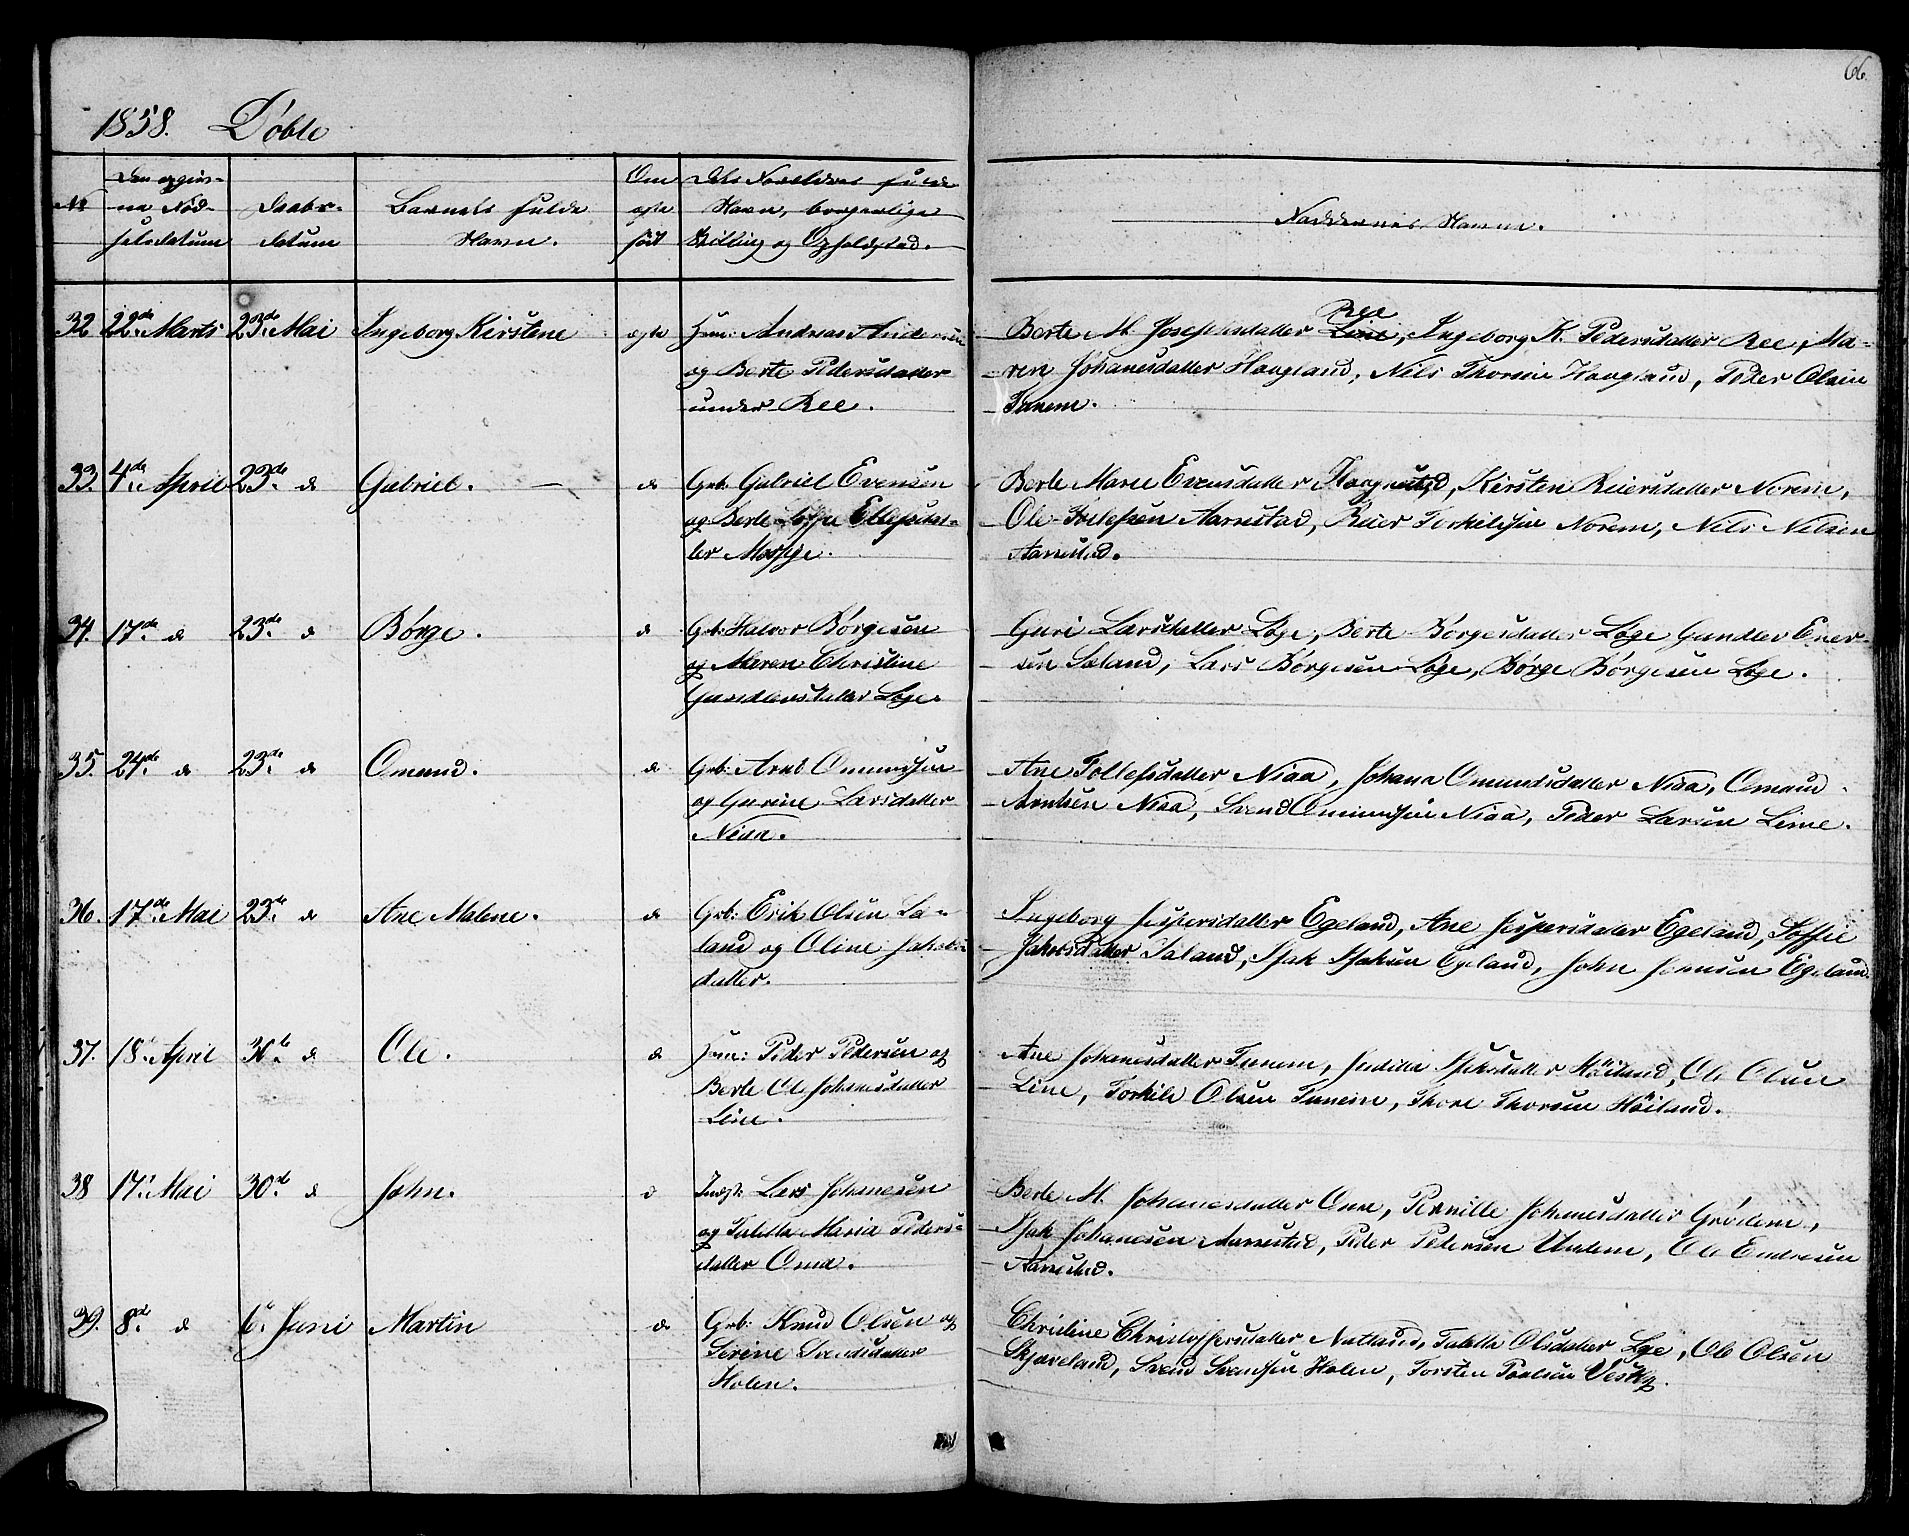 66.
1858. Døbte
No
Den opgiv-
ne Föd-
selsdatum
Daabs-
datum
Barnets fulde
Navn.
Om
egte
födt
Dets Forældres fulde
Navn, borgerlige
Stilling og Opholdsted.
Faddernes Navne.
32 22de Marts 23de Mai Ingeborg Kirstene egte Huusm: Andreas Andersen
og Berte Pedersdatter
under Ree.
Berte M. Josephsdatter Ree Line, Ingeborg K. Pedersdatter Ree, Ma-
ren Johanesdatter Haugland, Nils Thorsen Haugland, Peder Olsen
Tunem.
33. 4de April 23de d Gabriel. — d Grb: Gabriel Evensen
og Berte Soffie Ellefsdat-
ter Mossige.
Berte Marie Evensdatter Haugnestad, Kirsten Reiersdatter Norem,
Ole Tollefsen Aarrestad, Reier Torkilsen Norem, Nils Nilsen
Aarrestad.
34. 17de d 23de d Börge. d Grb: Halvor Börgesen
og Maren Christine
Gundersdatter Lye.
Guri Larsdatter Lye, Berte Börgesdatter Lye Gunder Ener-
sen Saland, Lars Börgesen Lye, Börge Börgesen Lye.
35. 24de d 23de d Omund. d Grb: Arnt Omundsen
og Gurine Larsdatter
Niaa.
Ane Tollefsdatter Niaa, Johana Omundsdatter Niaa, Omund
Arntsen Niaa, Svend Omundsen Niaa, Peder Larsen Lime.
36. 17de Mai 23de d Ane Malene. d Grb: Erik Olsen Sa-
land og Oline Jakobs-
datter.
Ingeborg Jespersdatter Egeland, Ane Jespersdatter Egeland, Soffie
Jakobsdatter Saland, Isak Isaksen Egeland, John Jonsen Egeland
37. 18de April 30te d Ole. d Huusm: Peder Pedersen og
Berte Ol. Johanesdatter
Line.
Ane Johanesdatter Tunem, Isaksdatter Höiland, Ole Olsen
Line, Torkild Olsen Tunem, Thore Thorsen Höiland.
38 17de Mai 30te d John. d Indst: Lars Johanesen
og Taletta Maria Peders-
datter Oma.
Berte M. Johanesdatter Oma, Pernille Johanesdatter Grödem,
Isak Johanesen Aarrestad, Peder Pedersen Undem, Ole Endresen
Aarrestad.
39. 8de d 6te Juni Martin d Grb: Knud Olsen og
Serine Svendsdatter
Holen.
Christine Christoffersdatter Netland, Taletta Olsdatter Lye, Ole Olsen
Skjæveland, Svend Svendsen Holen, Torsten Poulsen Vestly.